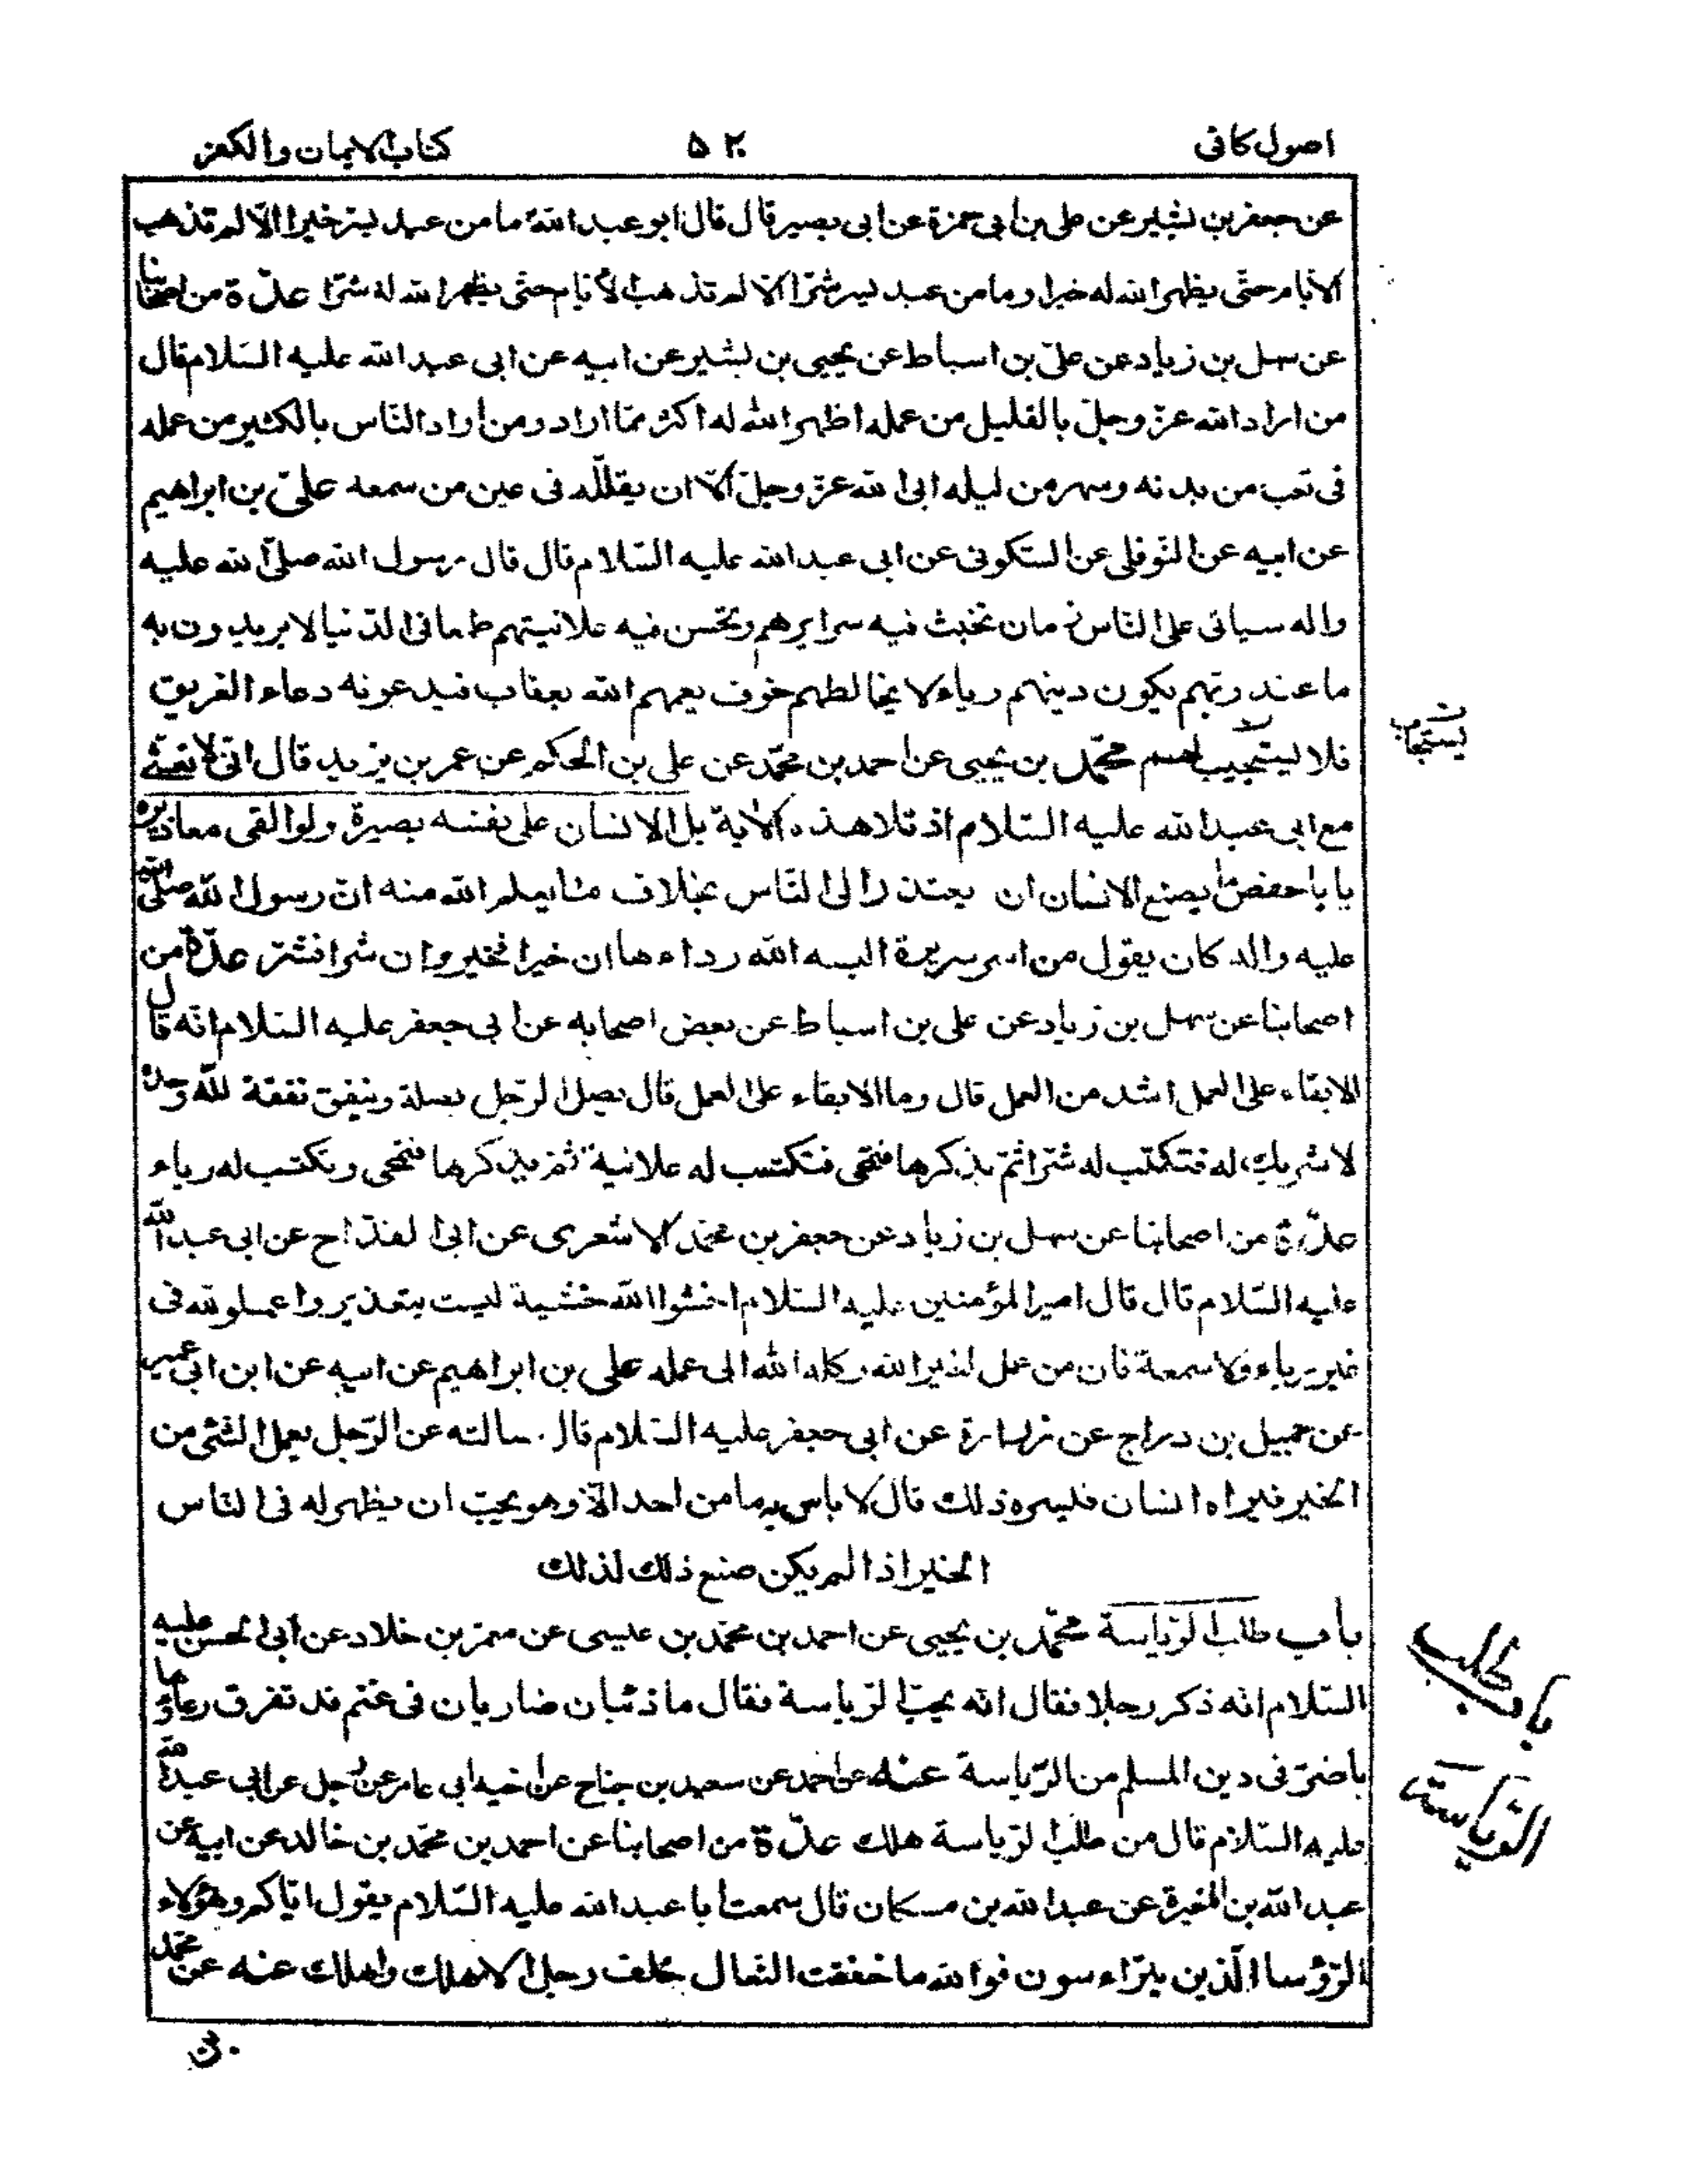 اصول كافى ٥٢٠ كتاب الايمان والكفر
عن جعفر بن بشير عن على بن ابى حمزة عن ابى بصير قال قال ابو عبد الله ما من عبد يسرّ خيرا الّا لم تذهب
الايام حتّى يظهر الله له خيرا وما من عبد يسر شرّا الّا لم تذهب الايّام حتى يظهر الله له شرّا عدّة من اصحابنا
عن سهل بن زياد عن علىّ بن اسباط عن يحيى بن بشير عن ابيه عن ابى عبد الله عليه السّلام قال
من اراد الله عزّ وجلّ بالقليل من عمله اظهر الله له اكثر ممّا اراد ومن اراد النّاس بالكثير من عمله
فى تعب من بدنه وسهر من ليله ابى الله عزّ وجلّ الّا ان يقلّله فى عين من سمعه علىّ بن ابراهيم
عن ابيه عن النّوفلى عن السّكونى عن ابى عبد الله عليه السّلام قال قال رسول الله صلّى الله عليه
واله سياتى على النّاس زمان تخبث فيه سرايرهم وتحسن فيه علانيتهم طمعا فى الدّنيا لا يريدون به
ما عند ربّهم يكون دينهم رياء لا يخالطهم خوف يعمهم الله بعقاب فيدعونه دعاء الغريق
فلا يستجيب لهم محمّد بن يحيى عن احمد بن محمّد عن على بن الحكم عن عمر بن يزيد قال انّى لاتعشّى
يستجاب
مع ابى عبد الله عليه السّلام اذ تلا هذه الاية بل الانسان على نفسه بصيرة ولو القى معاذيره
يا با حفص ما يصنع الانسان ان يعتذر الى النّاس بخلاف ما يعلم الله منه انّ رسول الله صلّى الله
عليه واله كان يقول من اسر سريرة البسه الله رداءها ان خيرا فخير وان شرا فشر عدّة من
اصحابنا عن سهل بن زياد عن على بن اسباط عن بعض اصحابه عن ابى جعفر عليه السّلام انّه قال
الابقاء على العمل اشد من العمل قال وما الابقاء على العمل قال يصل الرّجل بصلة وينفق نفقة للّه وحده
لا شريك له فتكتب له سّرا ثمّ يذكرها فتمحى فتكتب له علانية ثم يذكرها فتمحى وتكتب له رياء
عدّة من اصحابنا عن سهل بن زياد عن جعفر بن محمّد الاشعرى عن ابن القدّاح عن ابى عبد الله
عليه السّلام قال قال امير المؤمنين عليه السّلام اخشوا اللّه خشية ليست بتعذير واعملو لله فى
غير رياء ولا سمعة فان من عمل لغير الله وكله الله الى عمله على بن ابراهيم عن ابيه عن ابن ابى عمير
عن جميل بن دراج عن زرارة عن ابى جعفر عليه السّلام قال سالته عن الرّجل يعمل الشّئ من
الخير فيراه انسان فيسره ذلك قال لا باس به ما من احد الّا وهو يحبّ ان يظهر له فى النّاس
الخير اذا لم يكن صنع ذلك لذلك
باب طلب الرّياسة محمّد بن يحيى عن احمد بن محمّد بن عيسى عن معمّر بن خلاد عن ابى الحسن عليه
السّلام انه ذكر رجلا فقال انّه يحبّ الرّياسة فقال ما ذئبان ضاريان فى غنم قد تفرق رعاؤها
باضرّ فى دين المسلم من الرّياسة عنه عن احمد عن سعيد بن جناح عن اخيه ابى عامر عن رجل عن ابى عبد الله
عليه السّلام قال من طلب الرّياسة هلك عدّة من اصحابنا عن احمد بن محمّد بن خالد عن ابيه عن
عبد الله بن المغيرة عن عبد الله بن مسكان قال سمعت ابا عبد الله عليه السّلام يقول ايّاكم وهؤلاء
الرّؤسا الّذين يترّاءسون فوالله ما خفقت النّعال خلف رجل الا هلك واهلك عنه عن محمّد
باب طلب
الرّياسة
بن